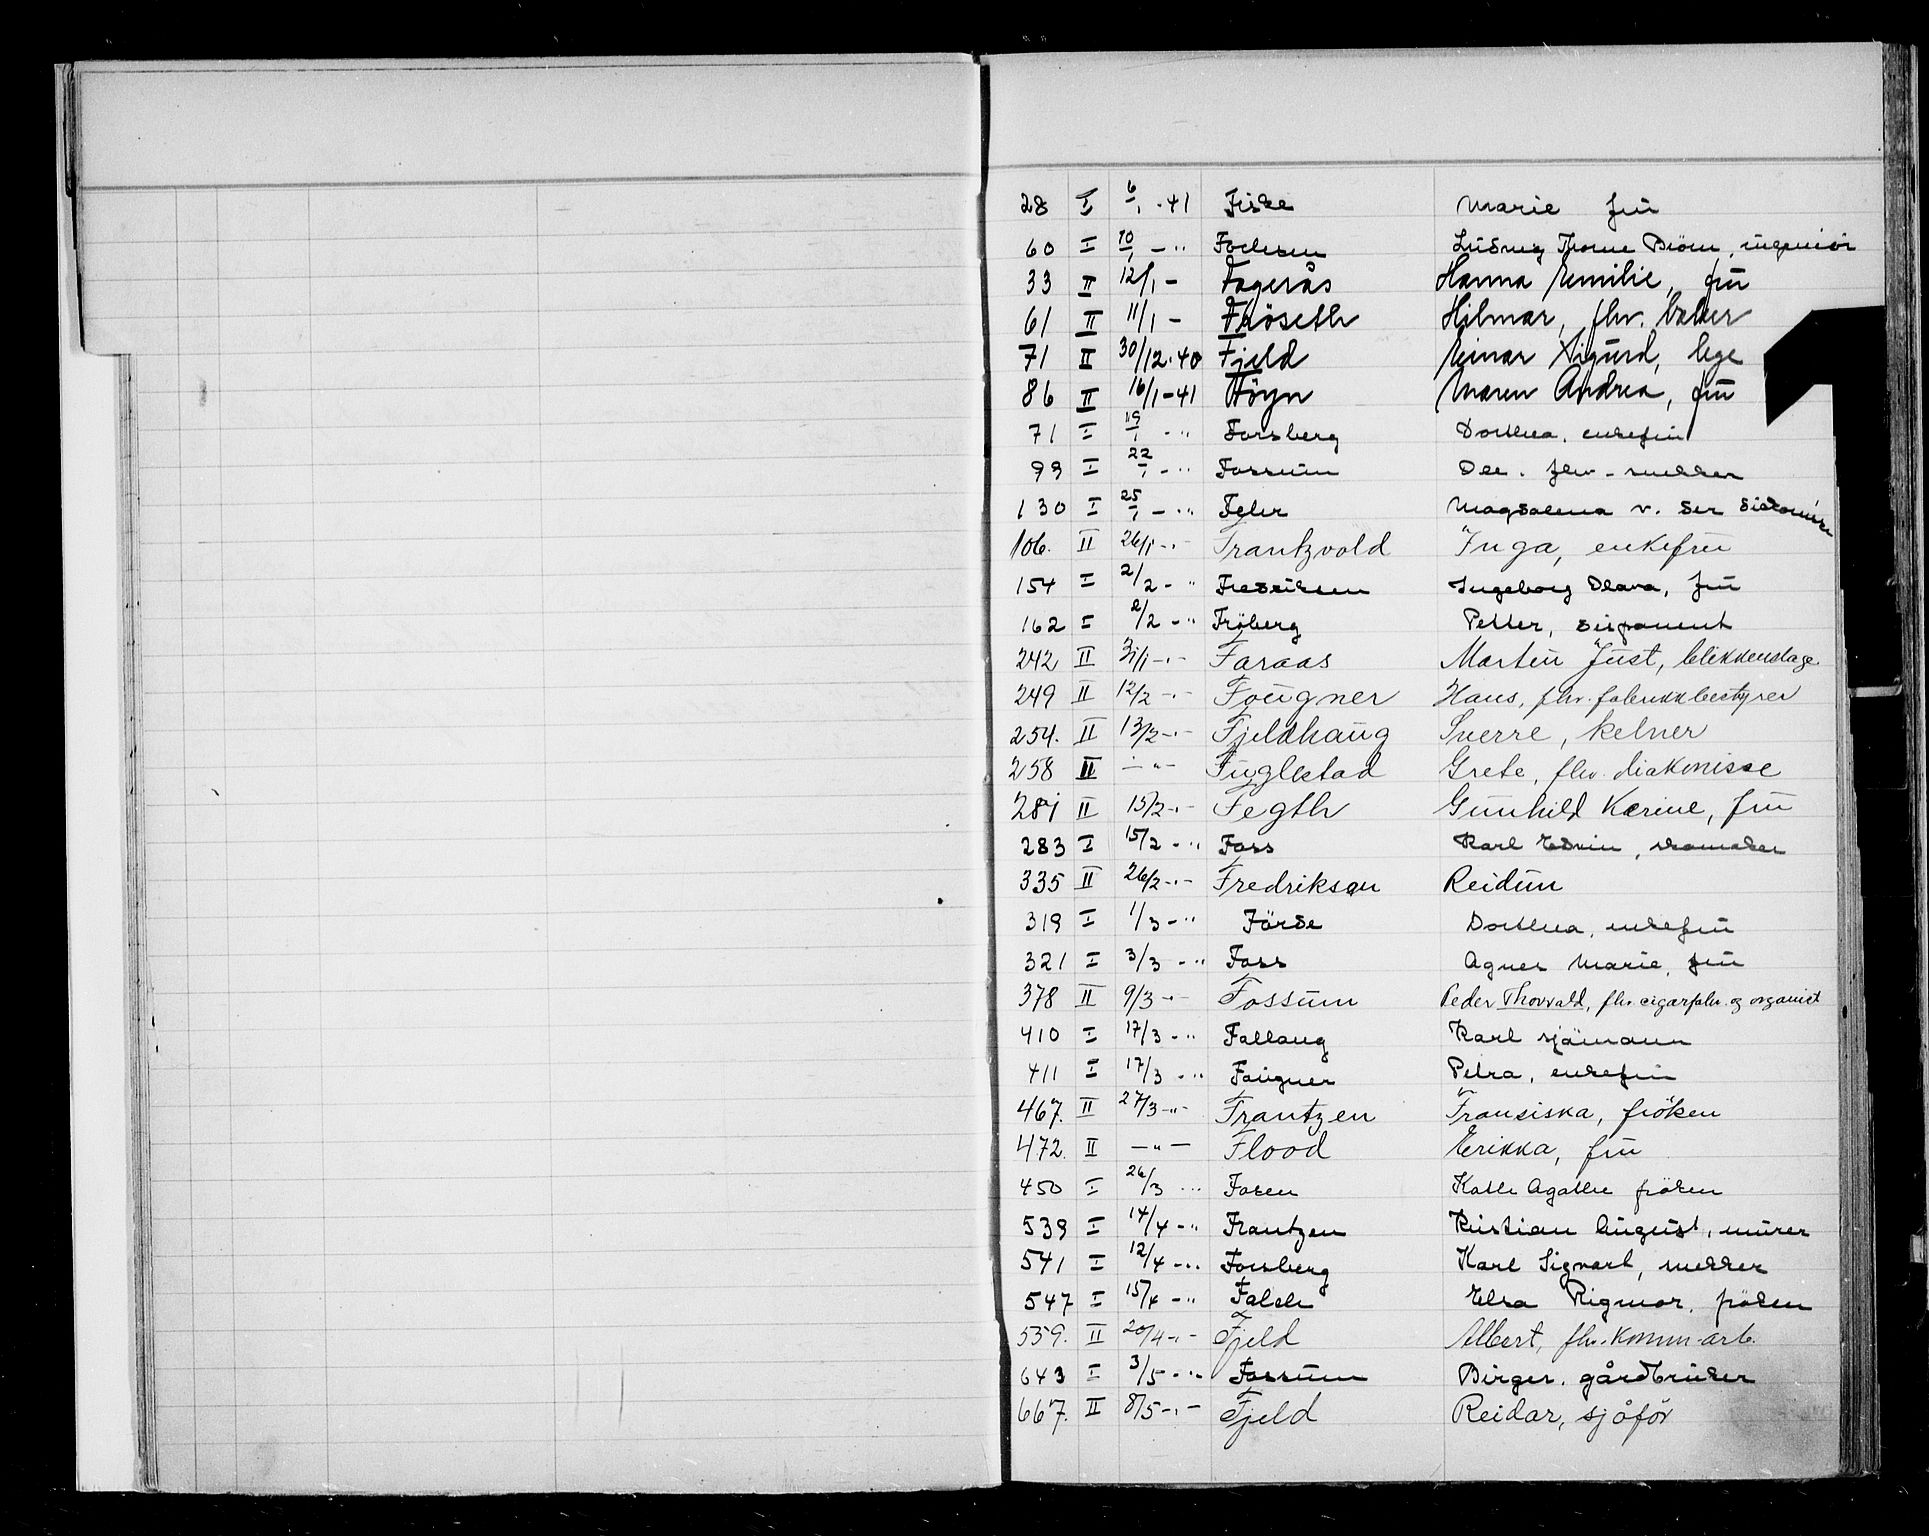 28 I 6/1 -41 Fiske Marie fru
60 I 10/1 - " Ludvig Thorne ingeniör
33 II 12/1 - Fagerås Hanna Emilie, fru
61 II 11/1 - Fröseth Hilmar, fhv. baker
71 II 30/12.40 Fjeld Einar Sigurd, lege
86 II 16/1-41 Föyn Maren Andrea, fru
71 I 19/1 - " Forsberg Dorthea, enkefru
99 I 22/1 - " Fossum Ole. fhv - snekker
130 I 25/1 - " Fehr Magdalena v. der
106. II 26/1 - " - Frantzvold Inga, enkefru
154 I 2/2 - " Fredriksen Ingeborg Olava, fru
162 I 2/2 - " Fröberg Petter, disponent
242 II 31/1 - " - Faraas Morten Just, blikkenslager
249 II 12/2 - " - Fougner Hans, fhv. fabrikkbestyrer
254. II 13/2 - " - Fjeldhaug Sverre, kelner
258 II - " - Fuglestad Grete, fhv. diakonisse
281 II 15/2 - " - Fegth Gunhild Karine, fru
283 I 15/2 - " Foss Karl Edvin, skomaker
335 II 26/2 - " - Fredriksen Reidun
319 I 1/3 - " Förde Dorthea, enkefru
321 I 3/3 - " Foss Agnes Marie, fru
378 II 9/3 - " - Fossum Peder Thorvald, fhv. cigarfabr. og organist
410 I 17/3 - " Fallang Karl sjömann
411 I 17/3 - " Fougner Petra, enkefru
467. II 27/3 - " - Frantzen Fransiska, fröken
472. II - " - Flood Erikka, fru
450 I 26/3 - " Fosen Kathe Agathe fröken
539 I 14/4 - " Frantzen Kristian August, murer
541 I 12/4 - " Forsberg Karl Sigvart, snekker
547 I 15/4 - " Falch Elsa Rigmor, fröken
559. II 20/4 - " - Fjeld Albert, fhv. komm-arb.
643 I 3/5 - " Fossum Birger, gårdbruker
667. II 8/5 - " - Fjeld Reidar, sjåför